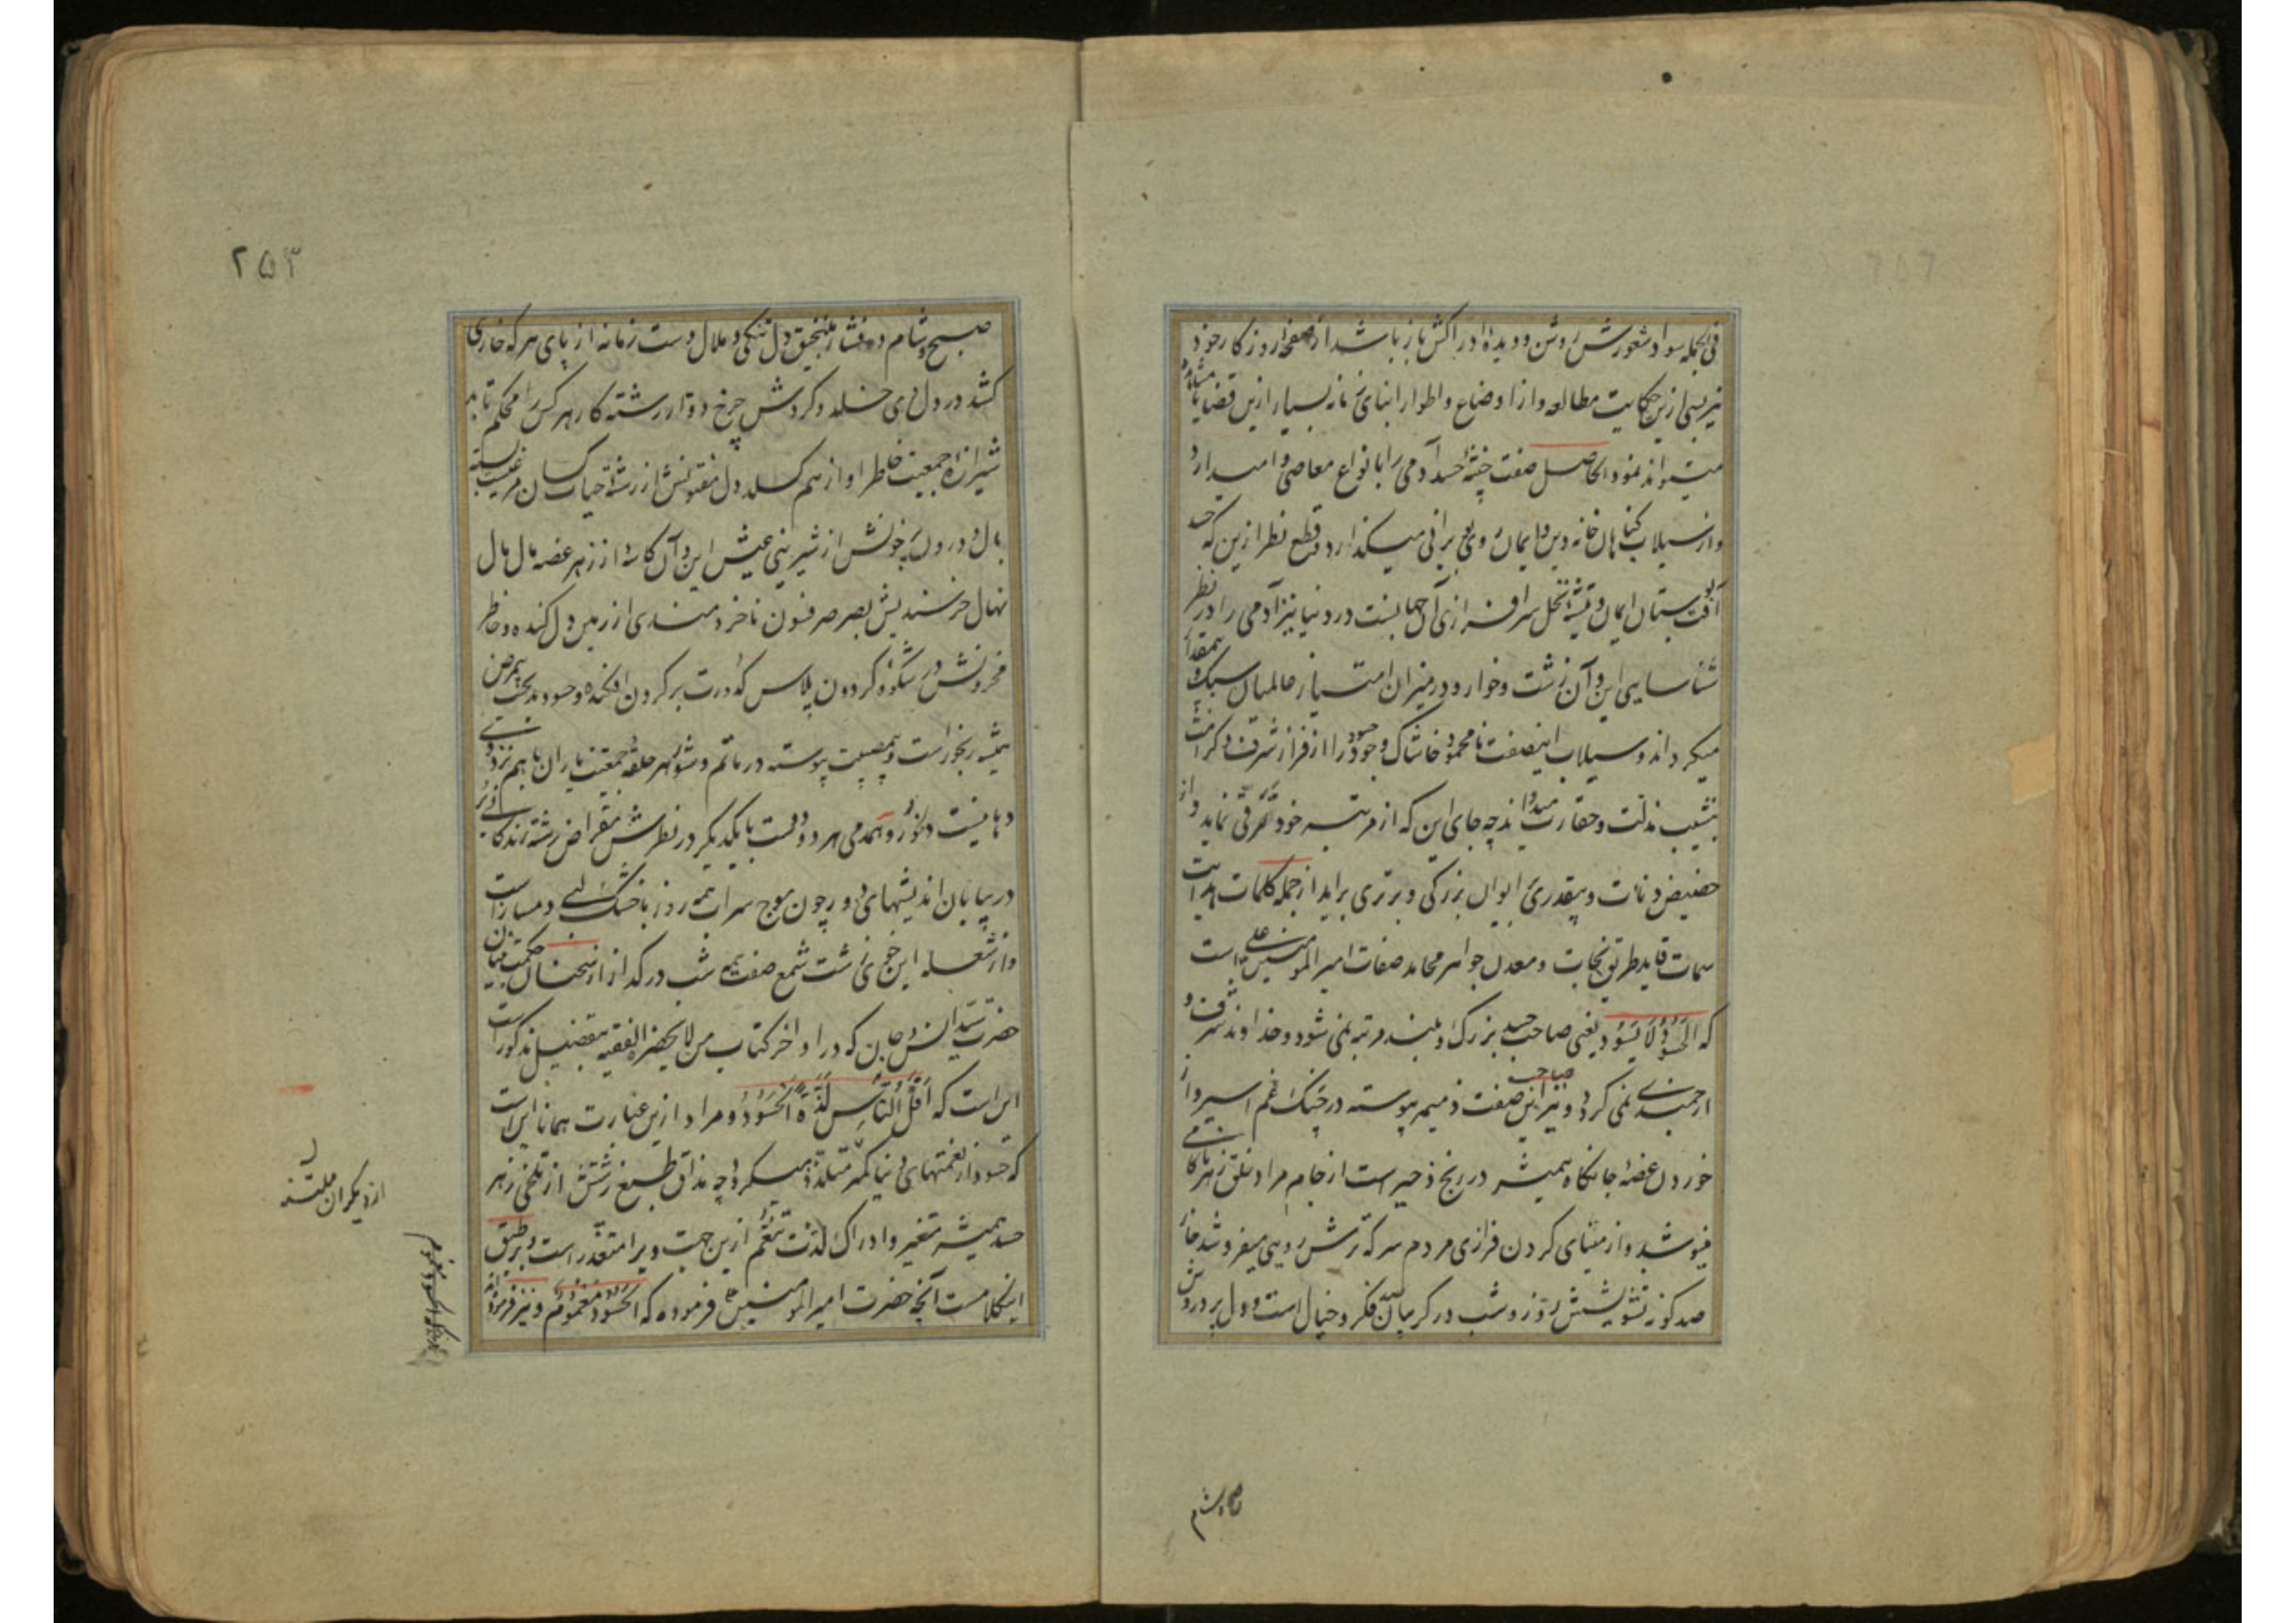 فی الجمله سواد شعورش روشن و دیده ادراکش باز باشد از صفحهٔ روزکار خود
نیز بسی ازین حکایت مطالعه و از اوضاع و اطوار ابنای زمانه بسیار ازین قضایا مشاهده
میتواند نمود و الحاصل صفت خبیثهٔ حسد آدمی را بانواع معاصی وا میدارد
و از سیلاب کناهان خانهٔ دین و ایمان روی بویرانی میکذارد قطع نظر ازین که حسد
آفت بوستان ایمان و تیشهٔ نخل سرافرازی آن جهانست در دنیا نیز آدمی را در نظر
شناسایی این و آن زشت و خوار و در میزان امتیاز عالمیان سبک و بیمقدار
میکرداند و سیلاب اینصفت نامحمود خاشاک وجود حسود را از فراز شرف و کرامت
بنشیب مذلت و حقارت میدواند چه جای این که از مرتبه خود ترقی نماید و از
حضیض دنائت و بیقدری بر ایوان بزرکی و برتری براید از جمله کلمات هدایت
سمات قاید طریق نجات و معدن جواهر محامد صفات امیر المومنین علیه است
که الحسود لا یسود یعنی صاحب حسد بزرک و بلند مرتبه نمی شود و خداوند شرف و
ارجمندی نمی کردد و نیز صاحب این صفت ذمیمه پیوسته در چنک غم اسیر و از
خوردن غصهٔ جانکاه همیشه در رنج زحیر است از جام مراد تلخی زهر ناکامی
مینوشد و از مینای کردن فرازی مردم سرکه ترش رویی میفروشد خار
صدکونه تشویشش روز و شب در کریبان فکر و خیال است و دل پر دردش
صبح و شام
صبح و شام در فشار منجنیق دل تنکی و ملال دست زمانه از پای هر که خاری
کشد در دل وی خلد و کردش چرخ دوار رشته کار هر کس را محکم تابد
شیرازهٔ جمعیت خاطر او از هم کسلد دل مفتونش از رشتهٔ حیات کسان مرغیست بسته
بال و درون پر خونش از شیرینی عیش این و آن کاسهٔ از زهر غصه مال مال
نهال خرسندیش بصرصر فسون ناخردمندی از زمین دل کنده و خاطر
محزونش در شکوه کردون پلاس کدورت بر کردن افکنده و حسود بدبخت بیمرض
همیشه رنجور است و بیمصیبت پیوسته در ماتم و شور هر حلقهٔ جمعیت یاران با هم نزد وی
دهانیست و همدمی هر دو دوست با یکدیکر در نظرش مقراض رشته زندکانی
در بیابان اندیشهای دور چون موج سراب همه روز با خشک لبی دمساز است
و از شعله این خوی زشت شمع صفت همه شب در کداز از سخنان حکمت بنیان
حضرت سید انس و جان که در اواخر کتاب من لا یحضره الفقیه بتفصیل مذکور است
این است که اقل الناس لذة الحسود و مراد ازین عبارت همانا این است
که حسود از نعمتهای دنیا کمتر متلذذ میکردد چه مذاق طبع زشتش از تلخی زهر
حسد همیشه متغیر و ادراک لذت تنعم ازین جهت ویرا متعذر است و بر طبق
اینکلامست آنچه حضرت امیر المومنین ع فرموده که الحسود مغموم و نیز فرموده
از دیکران
۲۵۳